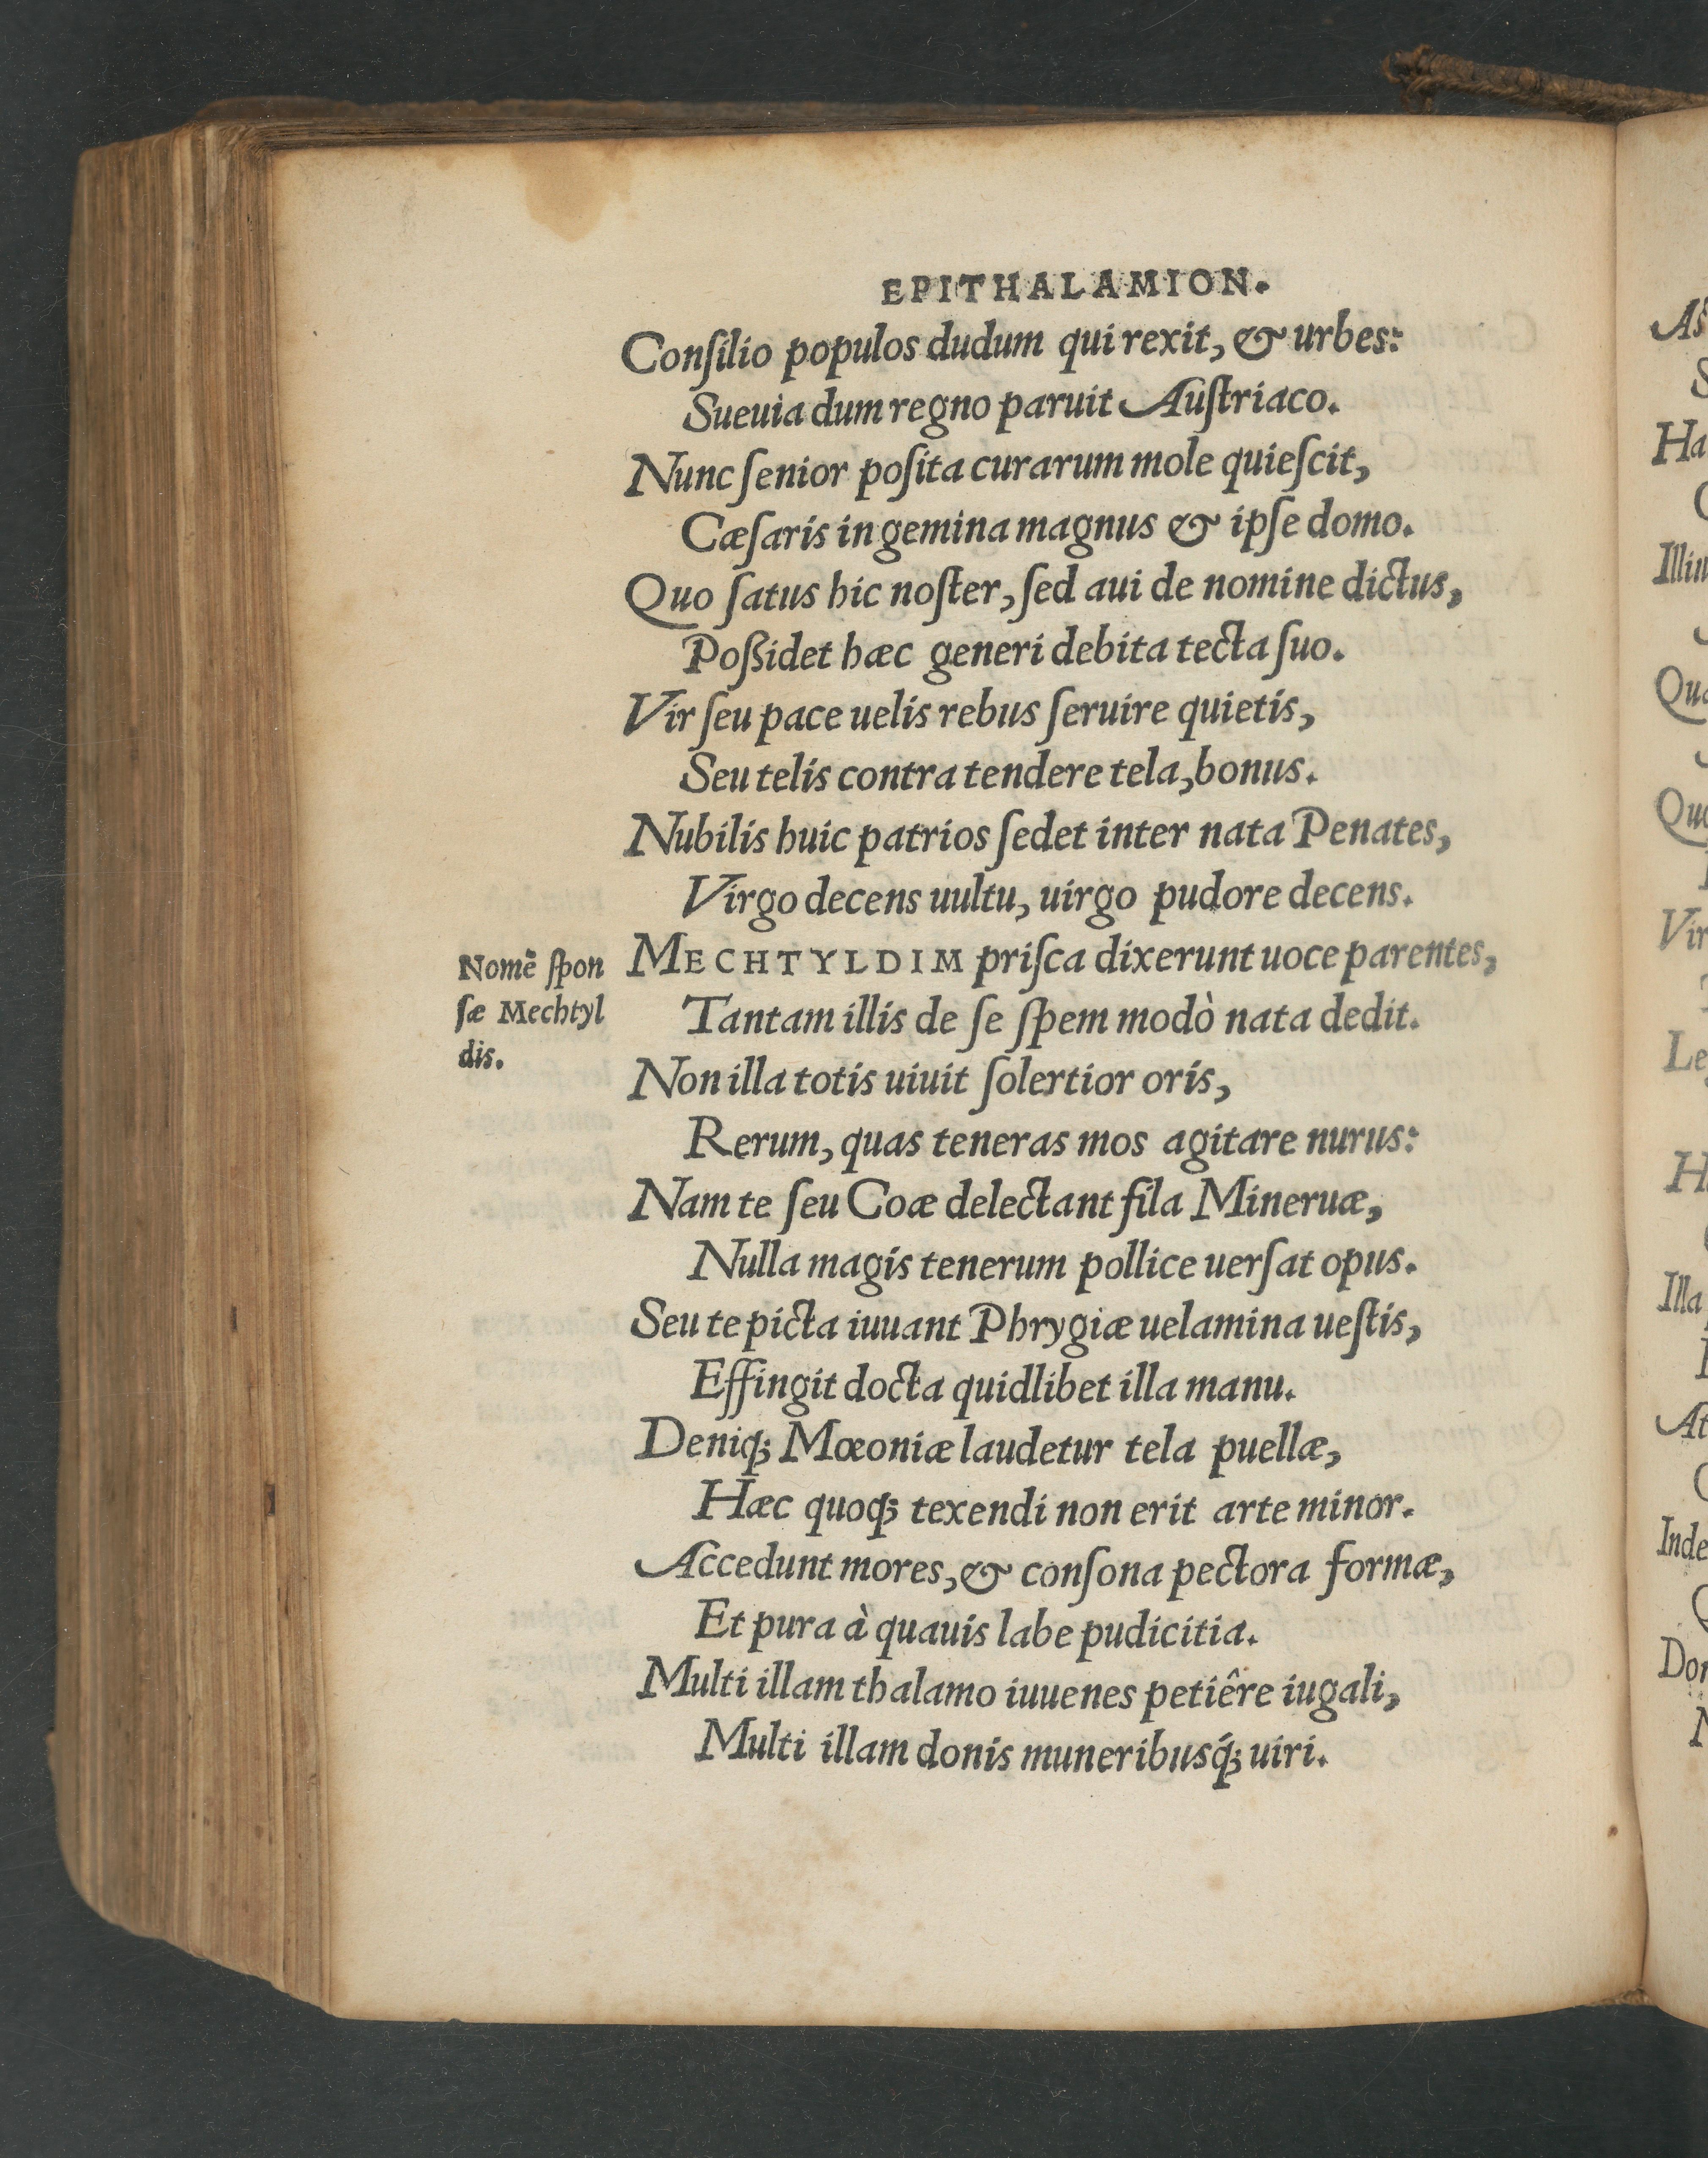 EPITHALAMION.
Conſilio populos dudum qui rexit, & urbes:
Sueuia dum regno paruit Auſtriaco.
Nunc ſenior poſita curarum mole quieſcit,
Cæſaris in gemina magnus & ipſe domo.
Quo ſatus hic noſter, ſed aui de nomine dictus,
Poßidet hæc generi debita tecta ſuo.
Vir ſeu pace uelis rebus ſeruire quietis,
Seu telis contra tendere tela, bonus.
Nubilis huic patrios ſedet inter nata Penates,
Virgo decens uultu, uirgo pudore decens.
MECHTYLDIM priſca dixerunt uoce parentes,
Tantam illis de ſe ſpem modò nata dedit.
Non illa totis uiuit ſolertior oris,
Rerum, quas teneras mos agitare nurus:
Nam te ſeu Coæ delectant fila Mineruæ,
Nulla magis tenerum pollice uerſat opus.
Seu te picta iuuant Phrygiæ uelamina ueſtis,
Effingit docta quidlibet illa manu.
Deniq; Mœoniæ laudetur tela puellæ,
Hæc quoq; texendi non erit arte minor.
Accedunt mores, & conſona pectora formæ,
Et pura à quauis labe pudicitia.
Multi illam thalamo iuuenes petiêre iugali,
Multi illam donis muneribusq́; uiri.
Nomẽ ſpon
ſæ Mechtyl
dis.
As
Ha
Illiu
Qua
Quo
Vir
Le
H
Illa
At
Inde
Don